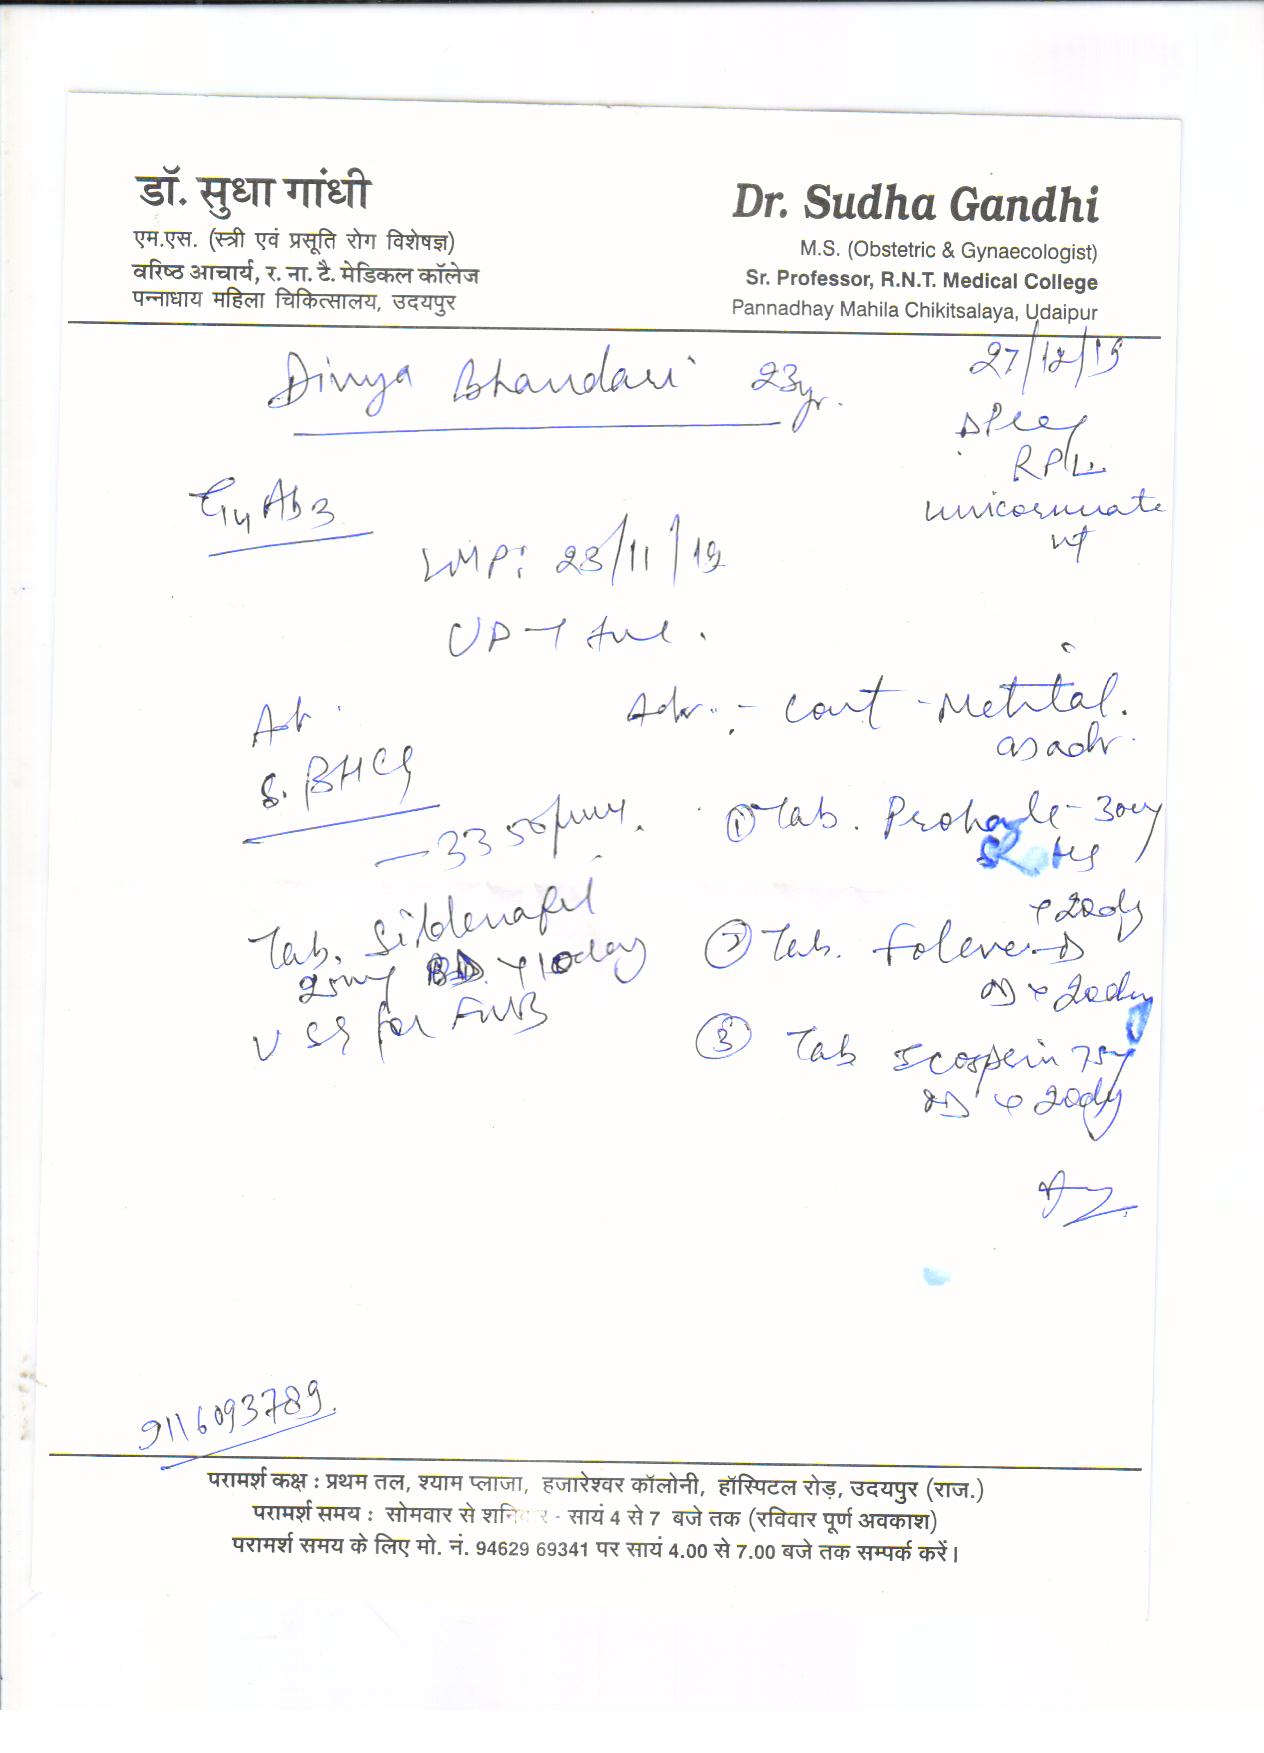 डॉ. सुधा गांधी
एम.एस. (स्त्री एवं प्रसूति रोग विशेषज्ञ)
वरिष्ठ आचार्य, र. ना. टै. मेडिकल कॉलेज
पन्नाधाय महिला चिकित्सालय, उदयपुर
Dr. Sudha Gandhi
M.S. (Obstetric & Gynaecologist)
Sr. Professor, R.N.T. Medical College
Pannadhay Mahila Chikitsalaya, Udaipur
27/12/19
Divya Bhandari 23yr.
RPL.
unicornuate
ut
G4Ab3
LMP: 23/11/19
UPT +ve.
Adv. - Cont -
as adv.
S. BHCG
- 3350
① Tab.
x 20dy
Tab. Sildenafil
25mg BD x 10day
② Tab. Folever-D
OD x 20dy
USG for FWB
③ Tab Ecosperin 75mg
OD x 20dy
9116093789.
परामर्श कक्ष : प्रथम तल, श्याम प्लाजा, हजारेश्वर कॉलोनी, हॉस्पिटल रोड़, उदयपुर (राज.)
परामर्श समय : सोमवार से शनिवार - सायं 4 से 7 बजे तक (रविवार पूर्ण अवकाश)
परामर्श समय के लिए मो. नं. 94629 69341 पर सायं 4.00 से 7.00 बजे तक सम्पर्क करें।